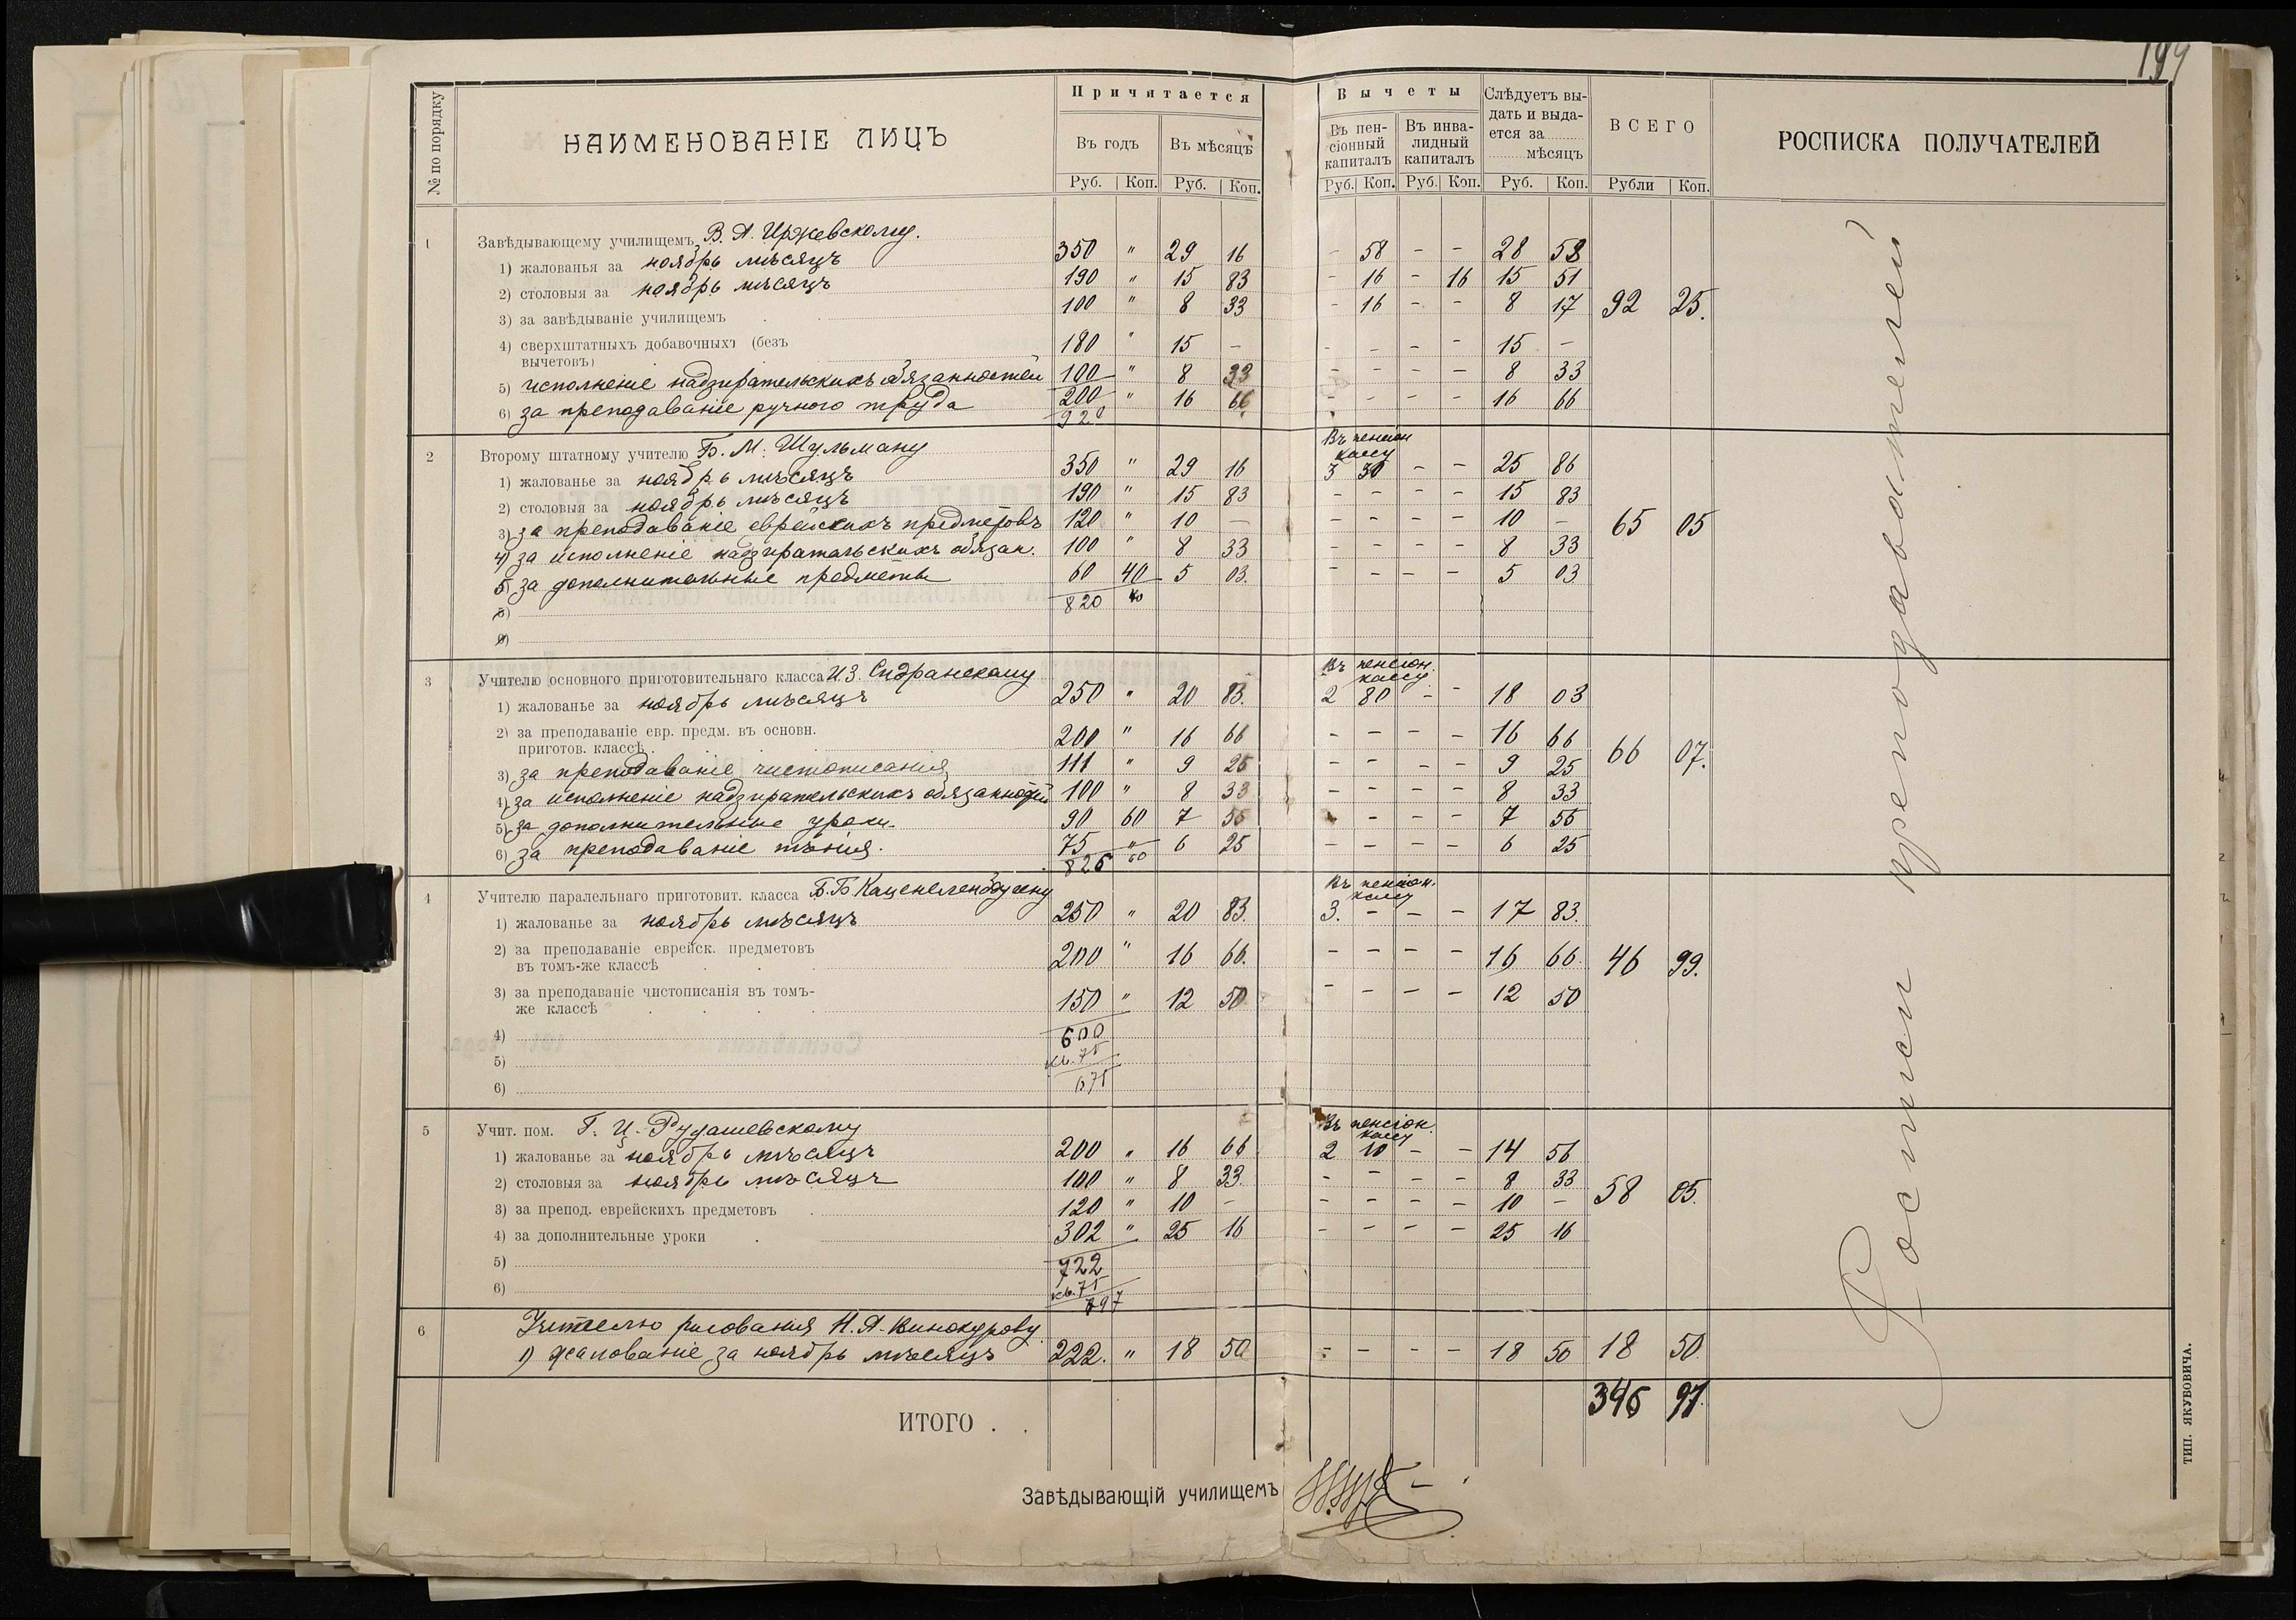 199
№ по порядку
НАИМЕНОВАНІЕ ЛИЦЪ
Причитается
Въ годъ
Въ мѣсяцъ
Руб. Коп. Руб. Коп.
Вычеты
Въ пен-
сіонный
капиталъ
Въ инва-
лидный
капиталъ
Слѣдуетъ вы-
дать и выда-
ется за
мѣсяцъ
ВСЕГО
РОСПИСКА ПОЛУЧАТЕЛЕЙ
Руб. Коп. Руб. Коп. Руб. Коп. Рубли Коп.
1 Завѣдывающему училищемъ В. А. Иржевскому.
1) жалованья за ноябрь мѣсяцъ 350 " 29 16 - 58 - - 28 58
2) столовыя за ноябрь мѣсяцъ 190 " 15 83 - 16 - 16 15 51
3) за завѣдываніе училищемъ 100 " 8 33 - 16 - - 8 17 92 25.
4) сверхштатныхъ добавочныхъ (безъ
вычетовъ) 180 " 15 - - - - - 15 -
5) исполненіе надзирательскихъ обязанностей 100 " 8 33 - - - - 8 33
6) за преподаваніе ручного труда 200 " 16 66 - - - - 16 66
920
2 Второму штатному учителю Б. М. Шульману
Въ пенсіон
кассу
1) жалованье за ноябрь мѣсяцъ 350 " 29 16 3 30 - - 25 86
2) столовыя за ноябрь мѣсяцъ 190 " 15 83 - - - - 15 83
3) за преподаваніе еврейскихъ предметовъ 120 " 10 - - - - - 10 - 65 05
4) за исполненіе надзирательскихъ обязан. 100 " 8 33 - - - - 8 33
5) за дополнительные предметы 60 40 5 03. - - - - 5 03
5) 820 40
6)
3 Учителю основного приготовительнаго класса И.З. Сидранскому
Въ пенсіон.
кассу
1) жалованье за ноябрь мѣсяцъ 250 " 20 83. 2 80 - - 18 03
2) за преподаваніе евр. предм. въ основн.
приготов. классѣ 200 " 16 66 - - - - 16 66 66 07.
3) за преподаваніе чистописанія 111 " 9 25 - - - - 9 25
4) за исполненіе надзирательскихъ обязанностей 100 " 8 33 - - - - 8 33
5) за дополнительные уроки. 90 60 7 55 - - - 7 55
6) за преподаваніе пѣнія. 75 " 6 25 - - - - 6 25
826 60
4 Учителю паралельнаго приготовит. класса Б.Б Каценеленбугену
Въ пенсіон.
кассу
1) жалованье за ноябрь мѣсяцъ 250 " 20 83. 3. - - - 17 83.
2) за преподаваніе еврейск. предметовъ
въ томъ-же классѣ 200 " 16 66. - - - - 16 66. 46 99.
3) за преподаваніе чистописанія въ томъ-
же классѣ 150 " 12 50 - - - - 12 50
4) 600
5) кв. 75
6) 675
5 Учит. пом. Г. Ц. Рудашевскому
Въ пенсіон.
кассу
1) жалованье за ноябрь мѣсяцъ 200 " 16 66 2 10 - - 14 56
2) столовыя за ноябрь мѣсяцъ 100 " 8 33. - - - - 8 33
3) за препод. еврейскихъ предметовъ 120 " 10 - - - - - 10 - 58 05.
4) за дополнительные уроки 302 " 25 16 - - - - 25 16
5) 722
6) кв. 75
797
6 Учителю рисованія Н. А. Винокурову
1) жалованіе за ноябрь мѣсяцъ 222. " 18 50 - - - - 18 50 18 50.
ИТОГО . . 346 97.
Росписи преподавателей
Завѣдывающій училищемъ
ТИП. ЯКУБОВИЧА.